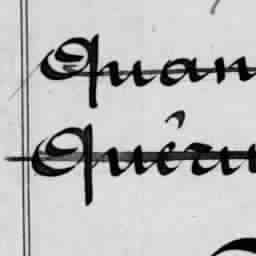 Quan
Quéru